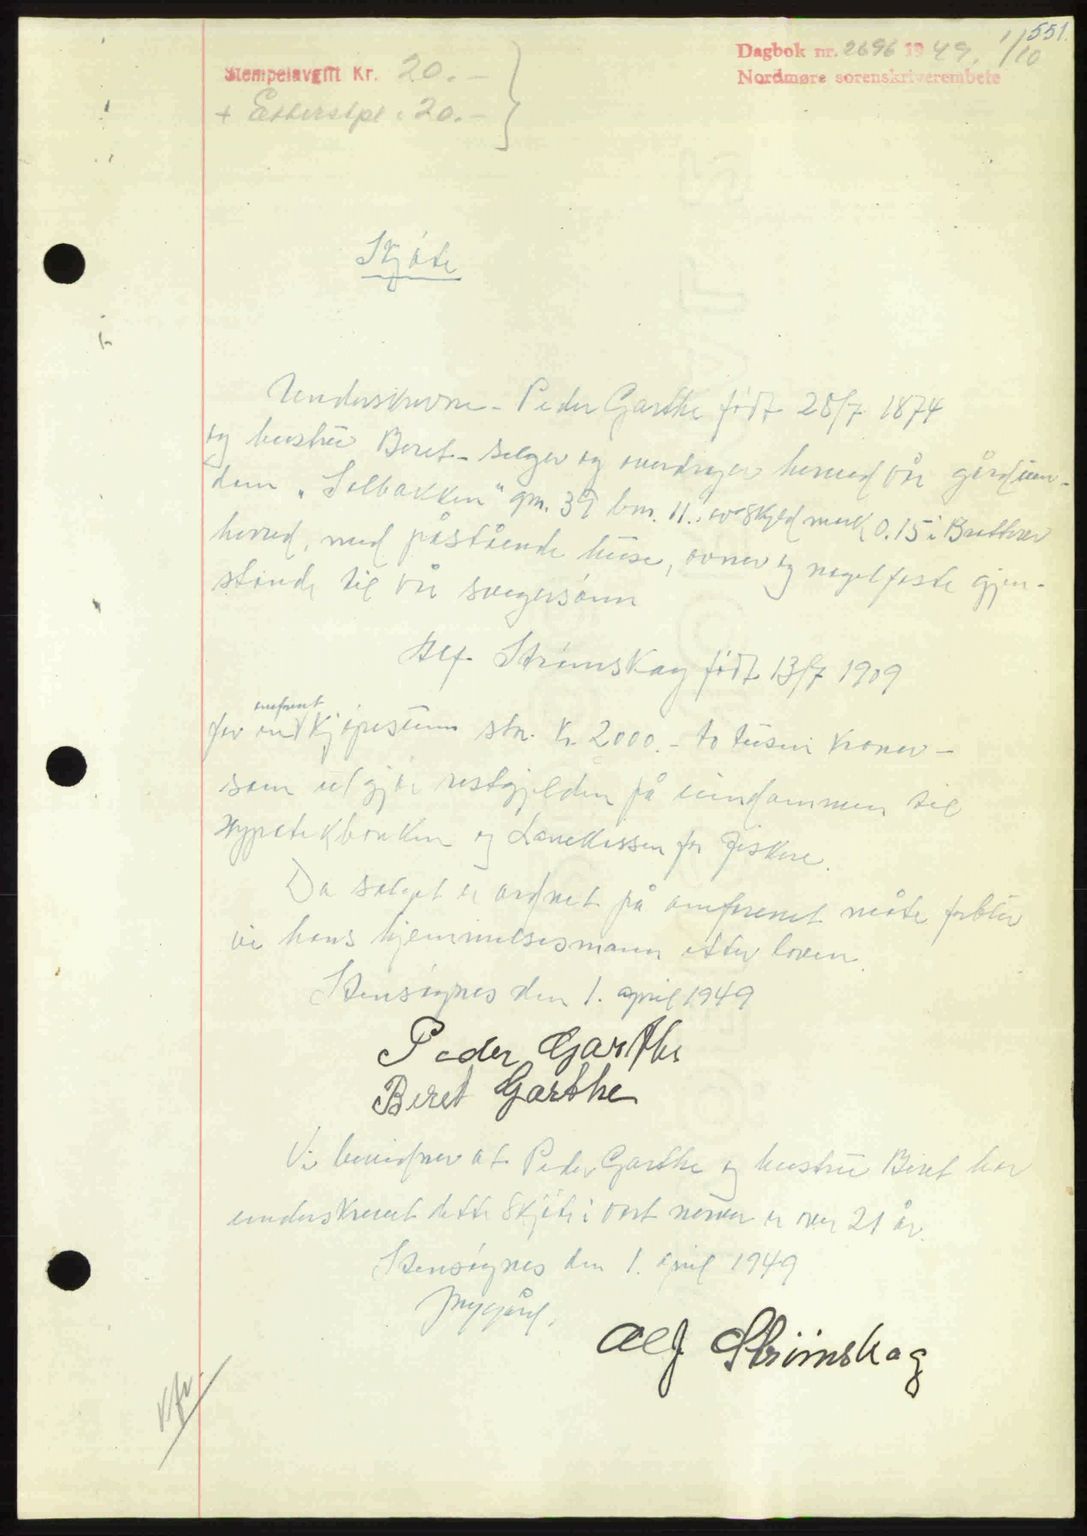 551.
Dagbok nr. 2696 1949. 1/10
Nordmøre sorenskriverembete
Stempelavgift Kr. 20.-
+ Etterstpl. 20.-
Skjøte
Underskrevne - Peder Garthe født 28/7 1874
og hustru Beret - selger og overdrager herved vår gårdeien-
dom "Solbakken" gnr. 39 bnr. 11. av skyld mark 0.15 i Brattvær
herred, med påstående huse, ovner og nagelfaste gjen-
stande til vår svigersønn
Alf Strømskag født 13/7 1909
omforent
for en kjøpesum stor Kr. 2000.- to tusen kroner -
som utgjør restgjelden på eiendommen til
Hypotekbanken og Lånekassen for Fiskere.
Da salget er ordnet på omforenet måte forblir
vi hans hjemmelsmann etter loven.
Stensøynes den 1. april 1949
Peder Garthe
Beret Garthe
Vi bevidner at Peder Garthe og hustru Beret har
underskrevet dette skjøte i vort nærvær er over 21 år.
Stensøynes den 1. april 1949
Alf Strømskag